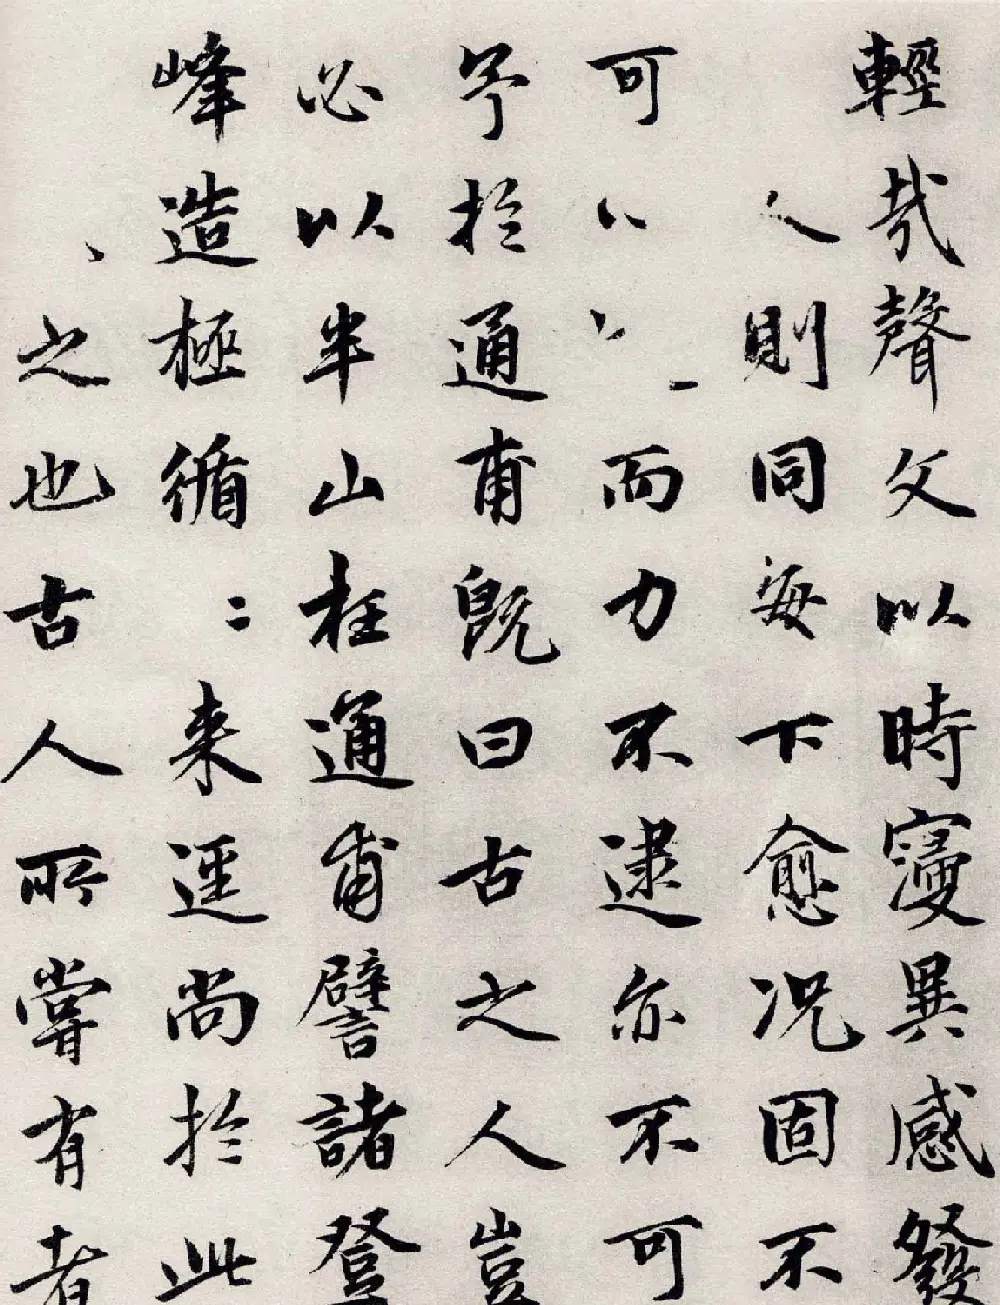 輕哉聲文以時寖異感發
人則同每下愈況固不
可而力不逮亦不可
予於通甫旣曰古之人豈
必以半山枉通甫譬諸登
峰造極循〻来逕尚於此
之也古人所嘗有者